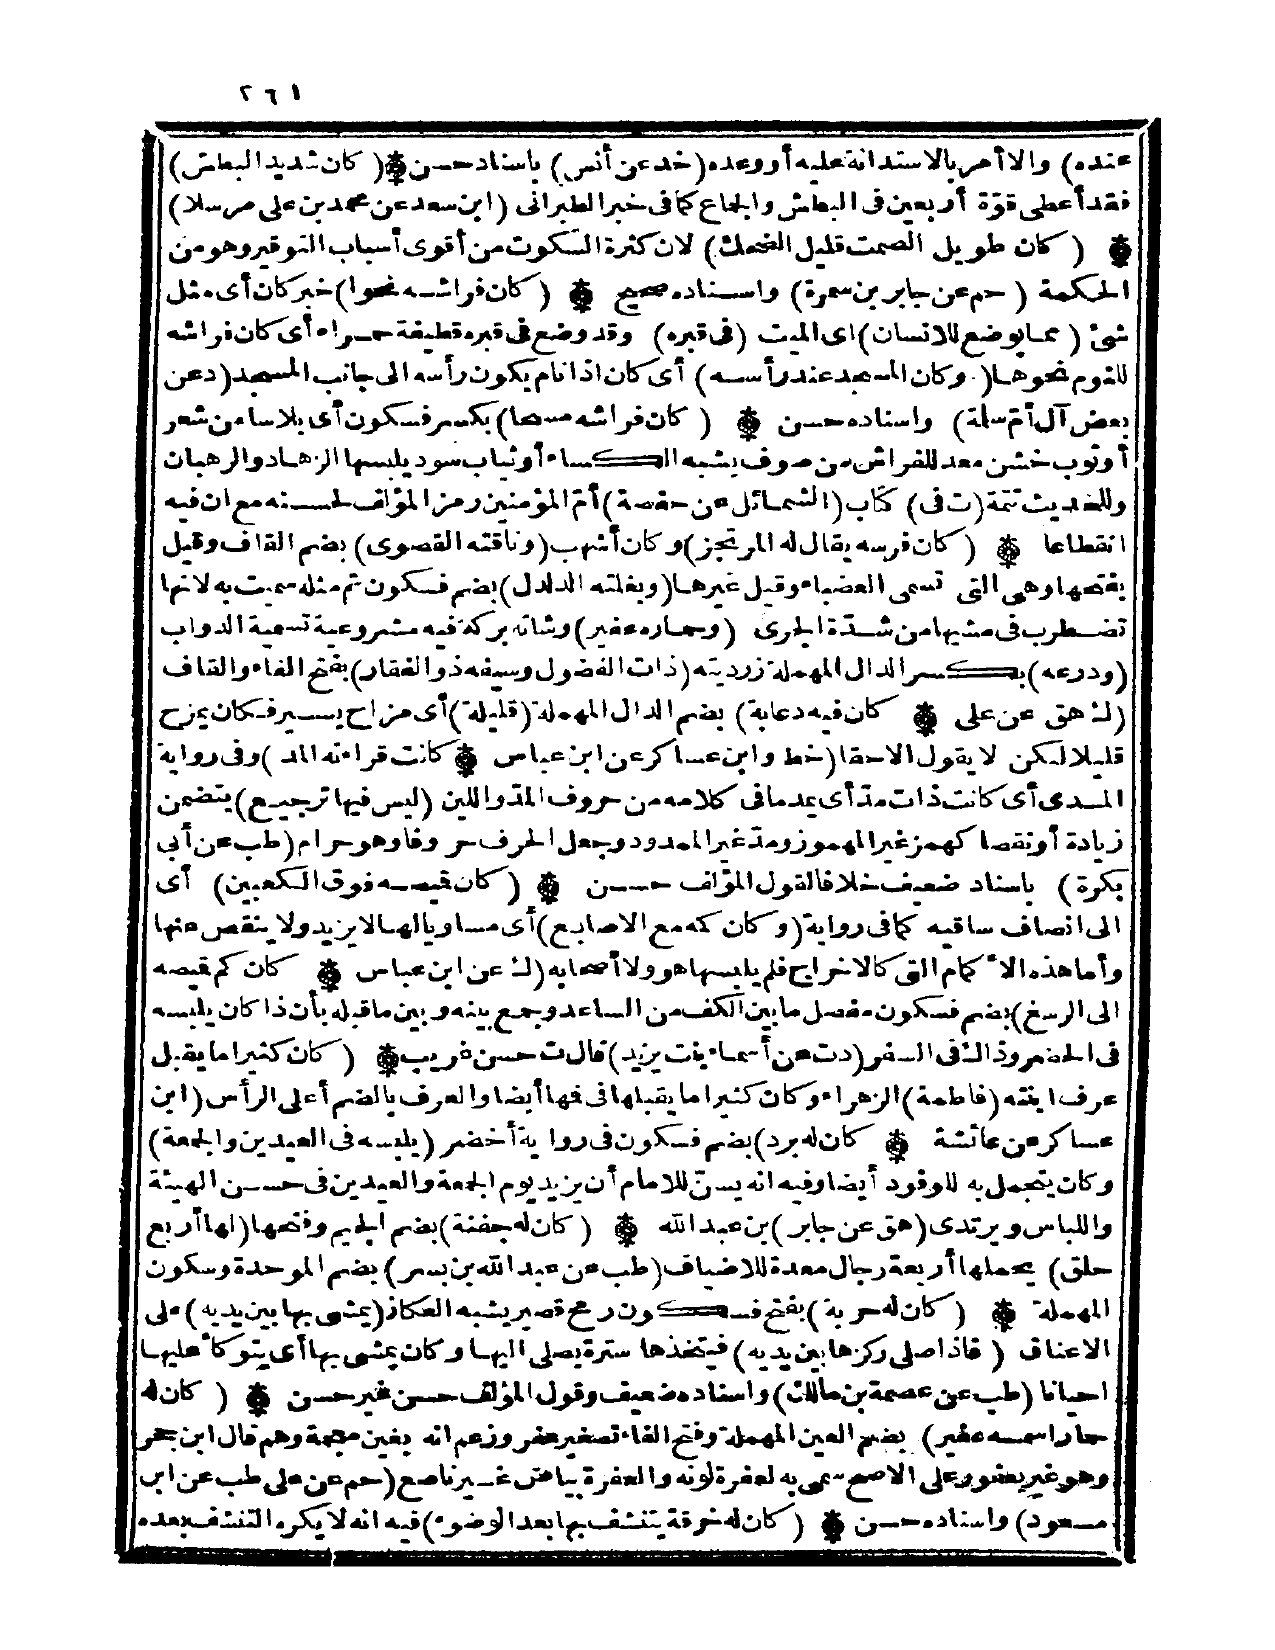 ٢٦١
عنده) والا أمر بالاستدانة عليه أو وعده (خد عن أنس) باسناد حسن ۞ (كان شديد البطش)
فقد أعطى قوّة أربعين فى البطش والجماع كما فى خبر الطبرانى (ابن سعد عن محمد بن على مرسلا)
۞ (كان طويل الصمت قليل الضحك) لان كثرة السكوت من أقوى أسباب التوقير وهو من
الحكمة (حم عن جابر بن سمرة) واسناده صحيح ۞ (كان فراشه نحوا) خبر كان أى مثل
شئ (مما يوضع للانسان) اى الميت (فى قبره) وقد وضع فى قبره قطيفة حمراء أى كان فراشه
للنوم نحوها (وكان المسجد عند رأسه) أى كان اذا نام يكون رأسه الى جانب المسجد (د عن
بعض آل أم سلة) واسناده حسن ۞ (كان فراشه مسحا) بكسر فسكون أى بلاسا من شعر
أو ثوب خشن معد للفراش من صوف يشبه الكساء أو ثياب سود يلبسها الزهاد والرهبان
وللحديث تتمة (ت فى) كتاب (الشمائل عن حفصة) أم المؤمنين رمز المؤلف لحسنه مع ان فيه
انقطاعا ۞ (كان فرسه يقال له المرتجز) وكان أشهب (وناقته القصوى) بضم القاف وقيل
بفتحها وهى التى تسمى العضباء وقيل غيرها (وبغلته الدلدل) بضم فسكون ثم مثله سميت به لانها
تضطرب فى مشيها من شدة الجرى (وحماره عفير) وشاته بركة فيه مشروعية تسمية الدواب
(ودرعه) بكسر الدال المهملة زرديته (ذات الفضول وسيفه ذو الفقار) بفتح الفاء والقاف
(ك هق عن على ۞ كان فيه دعابة) بضم الدال المهملة (قليلة) أى مزاح يسير فكان يمزح
قليلا لكن لا يقول الا حقا (خط وابن عساكر عن ابن عباس ۞ كانت قراءته المد) وفى رواية
المدى أى كانت ذات مد أى يمد ما فى كلامه من حروف المد واللين (ليس فيها ترجيع) يتضمن
زيادة أو نقصا كهمز غير المهموز ومد غير الممدود وجعل الحرف حروفا وهو حرام (طب عن أبى
بكرة) باسناد ضعيف خلافا لقول المؤلف حسن ۞ (كان قميصه فوق الكعبين) أى
الى انصاف ساقيه كما فى رواية (وكان كمه مع الاصابع) أى مساويا لها لا يزيد ولا ينقص عنها
وأما هذه الاكمام التى كالاخراج فلم يلبسها هو ولا أصحابه (ك عن ابن عباس ۞ كان كم قميصه
الى الرسغ) بضم فسكون مفصل ما بين الكف من الساعد وجمع بينه وبين ما قبله بأن ذا كان يلبسه
فى الحضر وذاك فى السفر (دت عن أسماء بنت يزيد) قال ت حسن غريب ۞ (كان كثيرا ما يقبل
عرف ابنته (فاطمة) الزهراء وكان كثيرا ما يقبلها فى فها أيضا والعرف بالضم أعلى الرأس (ابن
عساكر عن عائشة ۞ كان له برد) بضم فسكون فى رواية أخضر (يلبسه فى العيدين والجمعة)
وكان يتجمل به للوفود أيضا وفيه انه يسنّ للامام أن يزيد يوم الجمعة والعيدين فى حسن الهيئة
واللباس ويرتدى (هق عن جابر) بن عبد الله ۞ (كان له جفنة) بضم الجيم وفتحها (لها أربع
حلق) يحملها أربعة رجال معدة للاضياف (طب عن عبد الله بن بسر) بضم الموحدة وسكون
المهملة ۞ (كان له حربة) بفتح فسكون رمح قصير يشبه العكاز (يمشى بها بين يديه) على
الاعناق (فاذا صلى ركزها بين يديه) فيتخذها سترة يصلى اليها وكان يمشى بها أى يتوكأ عليها
احيانا (طب عن عصمة بن مالك) واسناده ضعيف وقول المؤلف حسن غير حسن ۞ (كان له
حمار اسمه عفير) بضم العين المهملة وفتح الفاء تصغير عفر وزعم انه بغين معجمة وهم قال ابن حجر
وهو غير يعفور على الاصح سمى به لعفرة لونه والعفرة بياض غير ناصع (حم عن على طب عن ابن
مسعود) واسناده حسن ۞ (كان له خرقة يتنشف بها بعد الوضوء) فيه انه لا يكره التنشف بعده